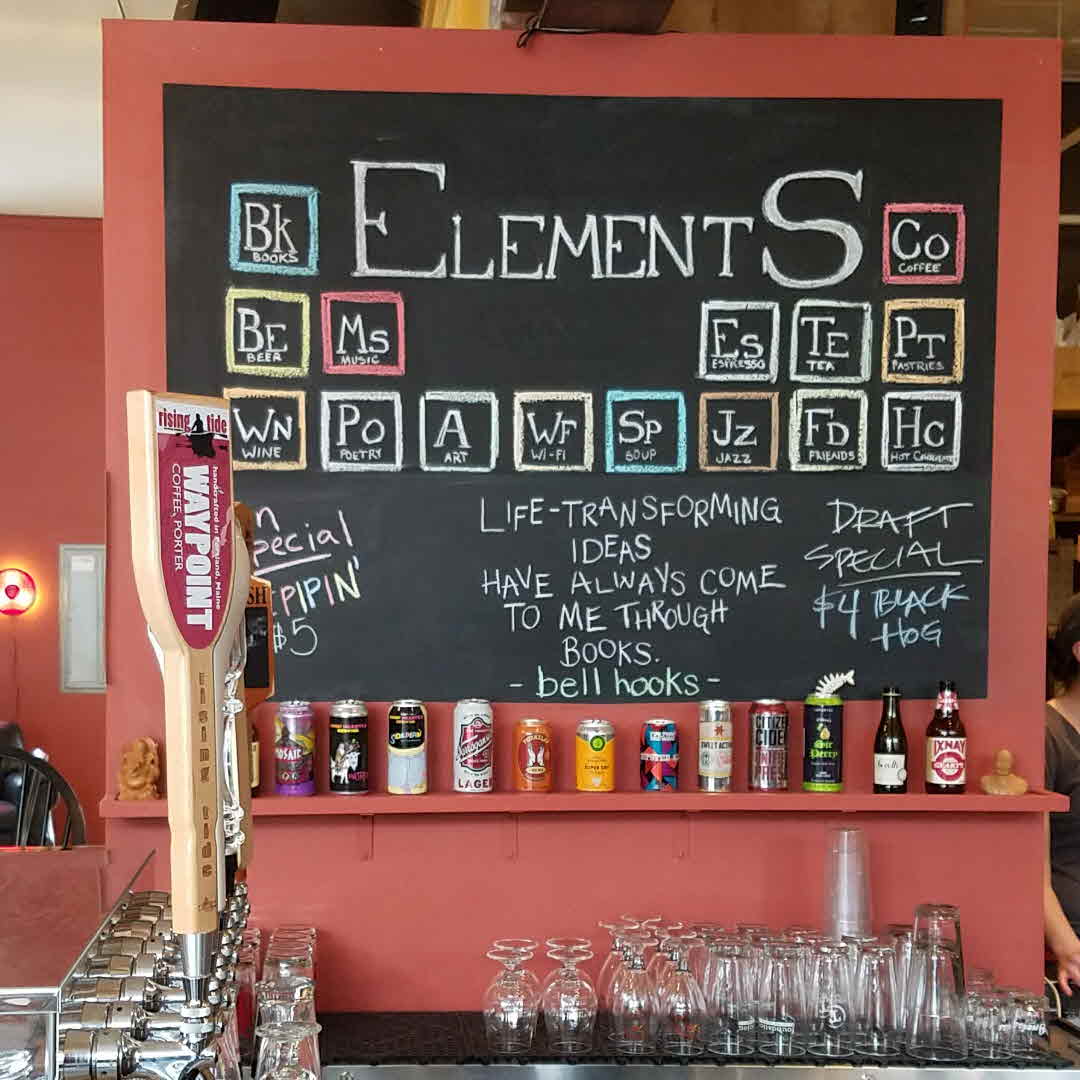 ELEMENTS
Bk
BOOKS
Co
COFFEE
BE
BEER
Ms
MUSIC
Es
ESPRESSO
TE
TEA
PT
PASTRIES
WN
WINE
Po
POETRY
A
ART
WF
WI-FI
Sp
SOUP
Jz
JAZZ
FD
FRIENDS
Hc
HOT CHOCOLATE
pecial
PIPIN'
$5
LIFE-TRANSFORMING
IDEAS
HAVE ALWAYS COME
TO ME THROUGH
BOOKS.
- bell hooks -
DRAFT
SPECIAL
$4 BLACK
HOG
rising tide
handcrafted in Portland, Maine
WAYPOINT
COFFEE PORTER
rising tide
SH
MOSAIC
Narragansett
LAGER
SWEET ACTION
CITIZEN
CIDER
Sir
Perry
IXNAY